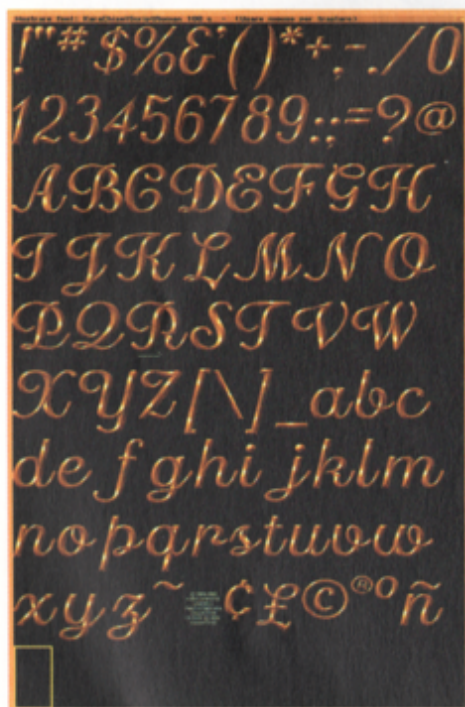 !"#$%&'()*+,-./0
123456789:;=?@
ABCDEFGH
IJKLMNO
PQRSTVW
XYZ[\]_abc
defghijklm
nopqrstuvw
xyz~ ¢£©®ºñ